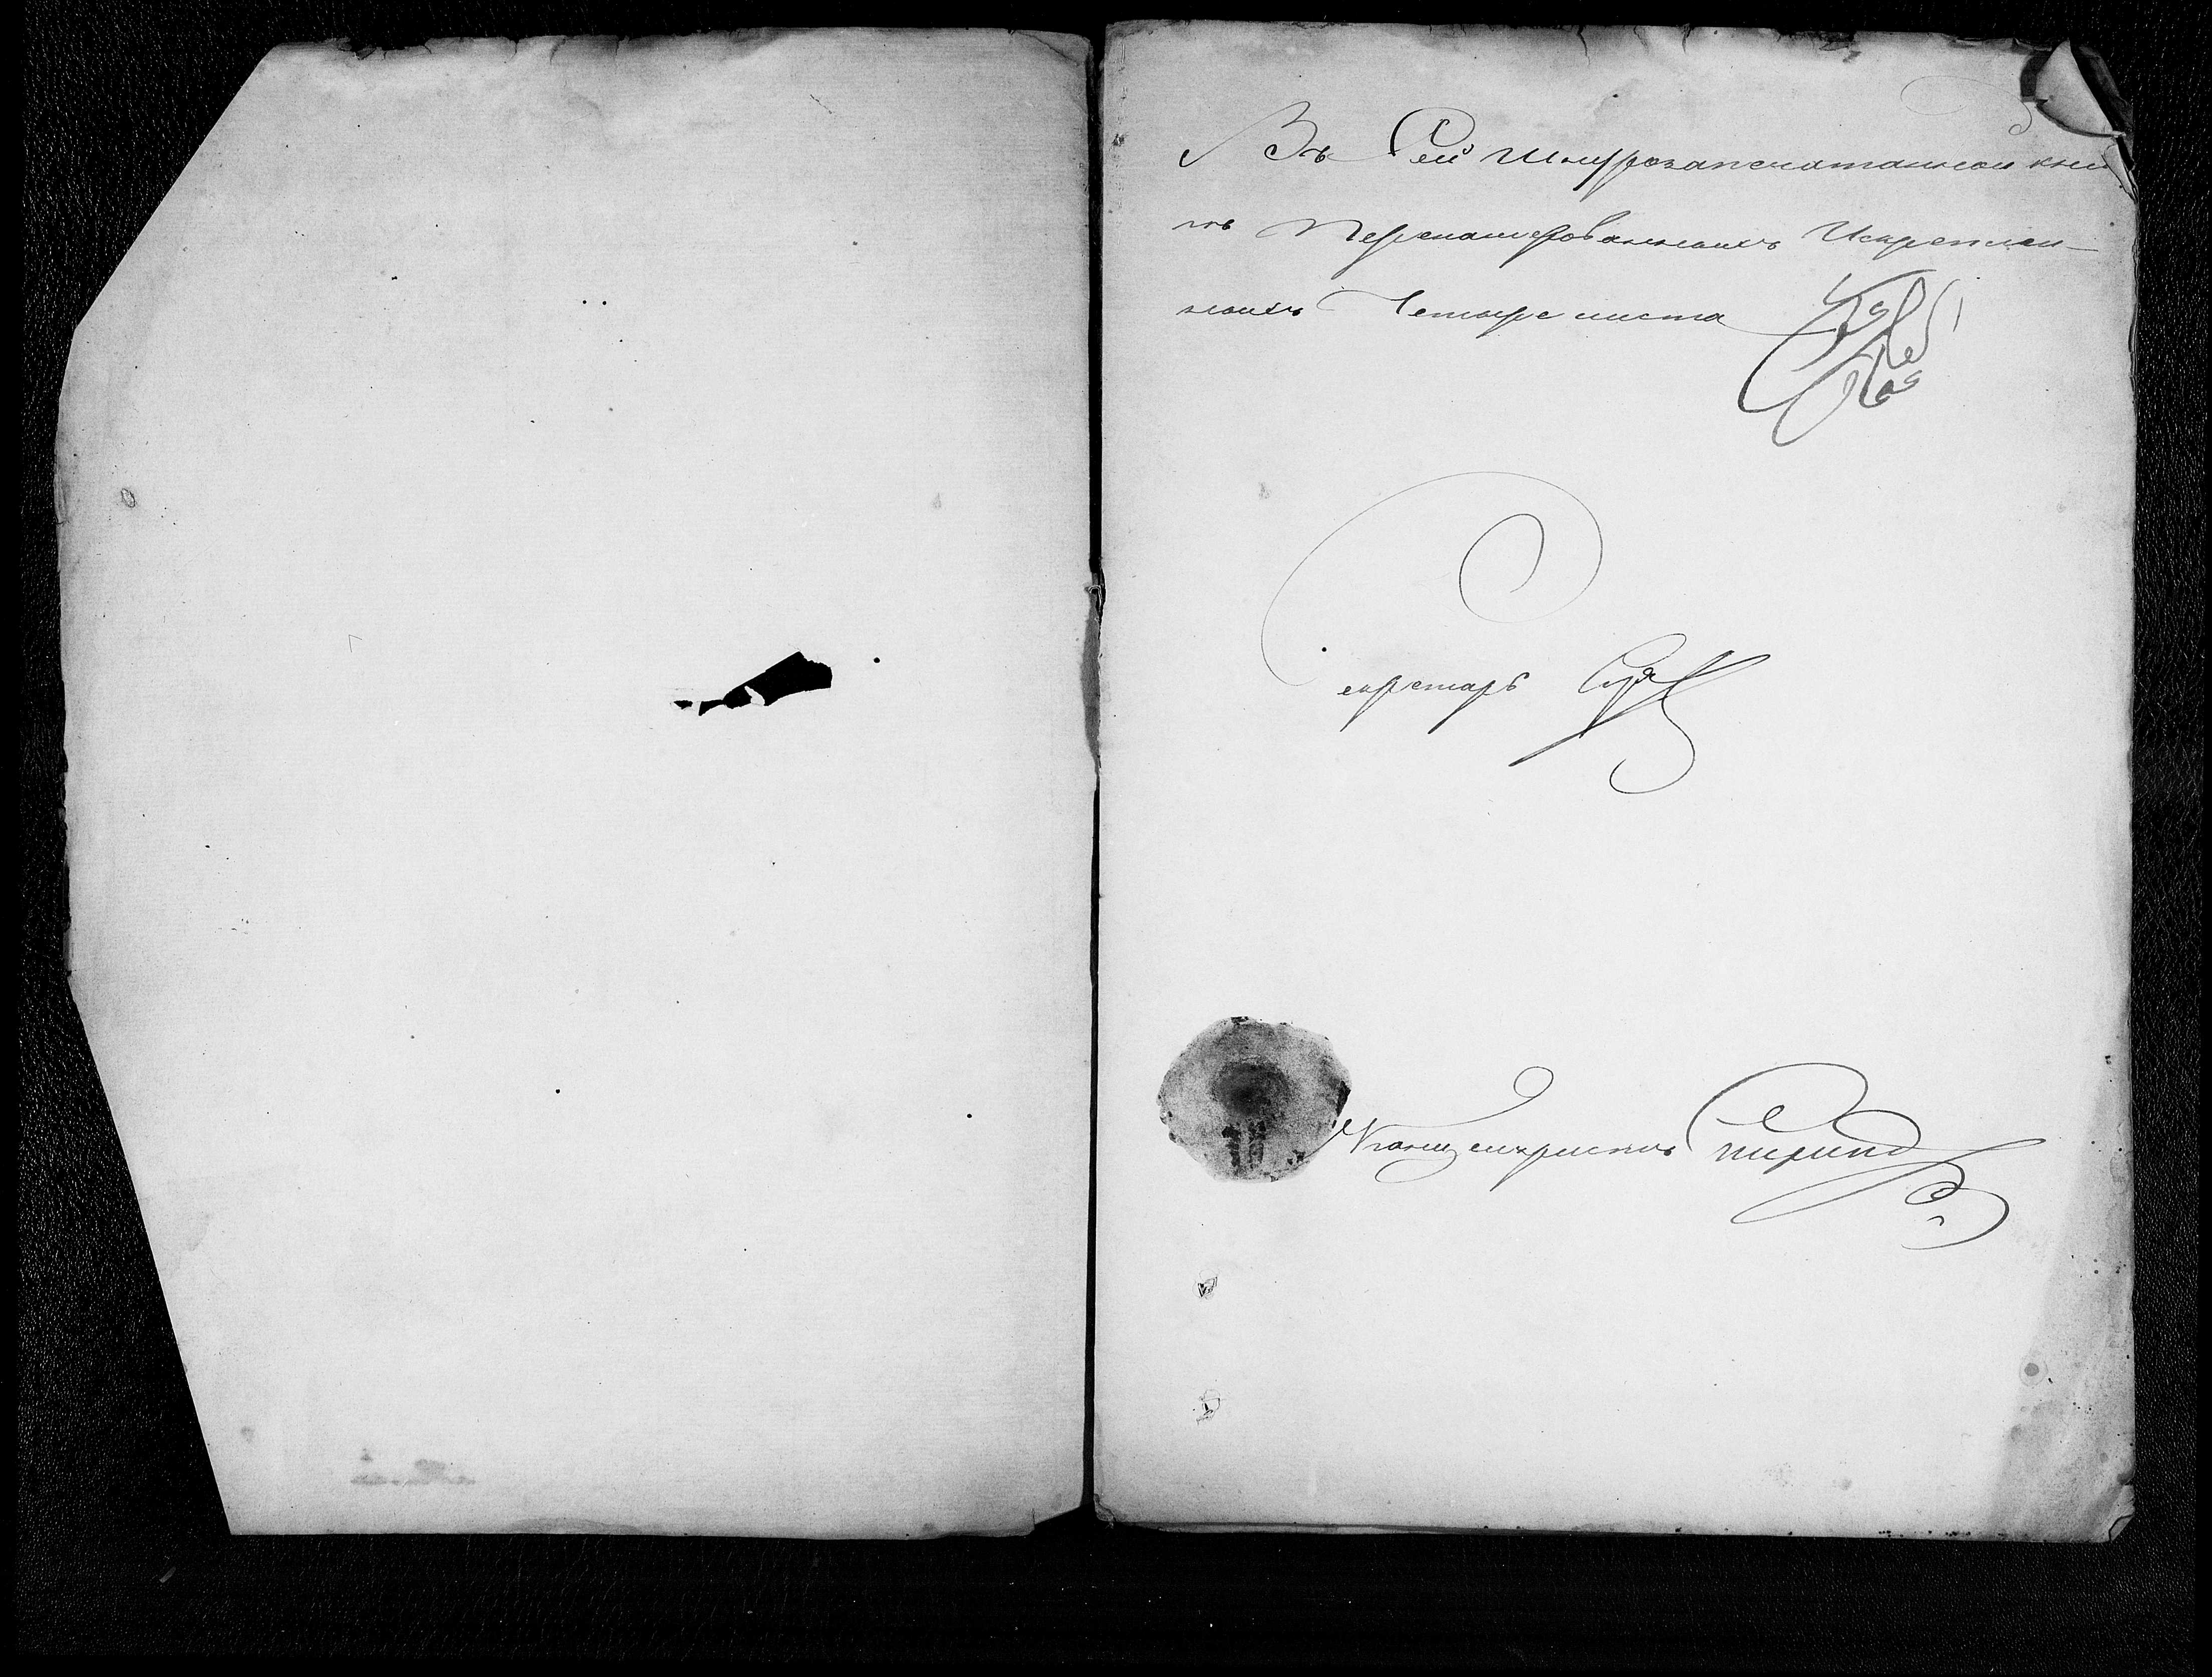 Въ Сей Шнурозапечатанной кни
гѣ Перенамерованныхъ Искреплен-
ныхъ Четыре листа
Секретарь
Канцеляристъ